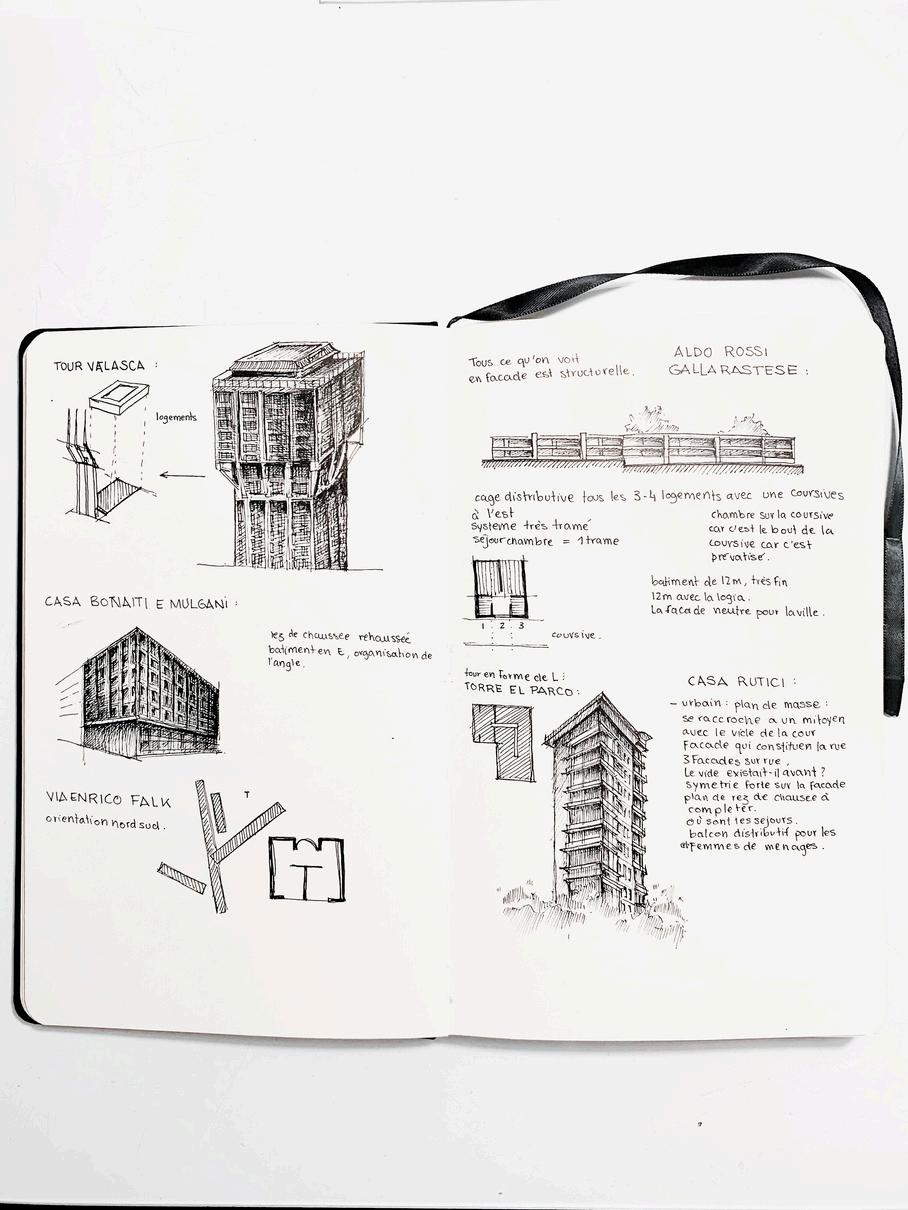 TOUR VELASCA :
logements
CASA BONAITI E MULGANI :
rez de chaussée rehaussée
batiment en E, organisation de
l'angle.
VIA ENRICO FALK
orientation nord sud.
T
Tous ce qu'on voit
en facade est structurelle.
ALDO ROSSI
GALLARASTESE :
cage distributive tous les 3-4 logements avec une coursives
à l'est
systeme très tramé
séjour chambre = 1 trame
chambre sur la coursive
car c'est le bout de la
coursive car c'est
prévatisé.
batiment de 12m, très fin
12m avec la logia.
La facade neutre pour la ville.
1 2 3
coursive.
tour en forme de L :
TORRE EL PARCO :
CASA RUTICI :
- urbain : plan de masse :
se raccroche a un mitoyen
avec le vide de la cour
Facade qui constituen la rue
3 Facades sur rue,
Le vide existait-il avant ?
symetrie forte sur la facade
plan de rez de chausee à
completer.
où sont les sejours.
balcon distributif pour les
femmes de menages.